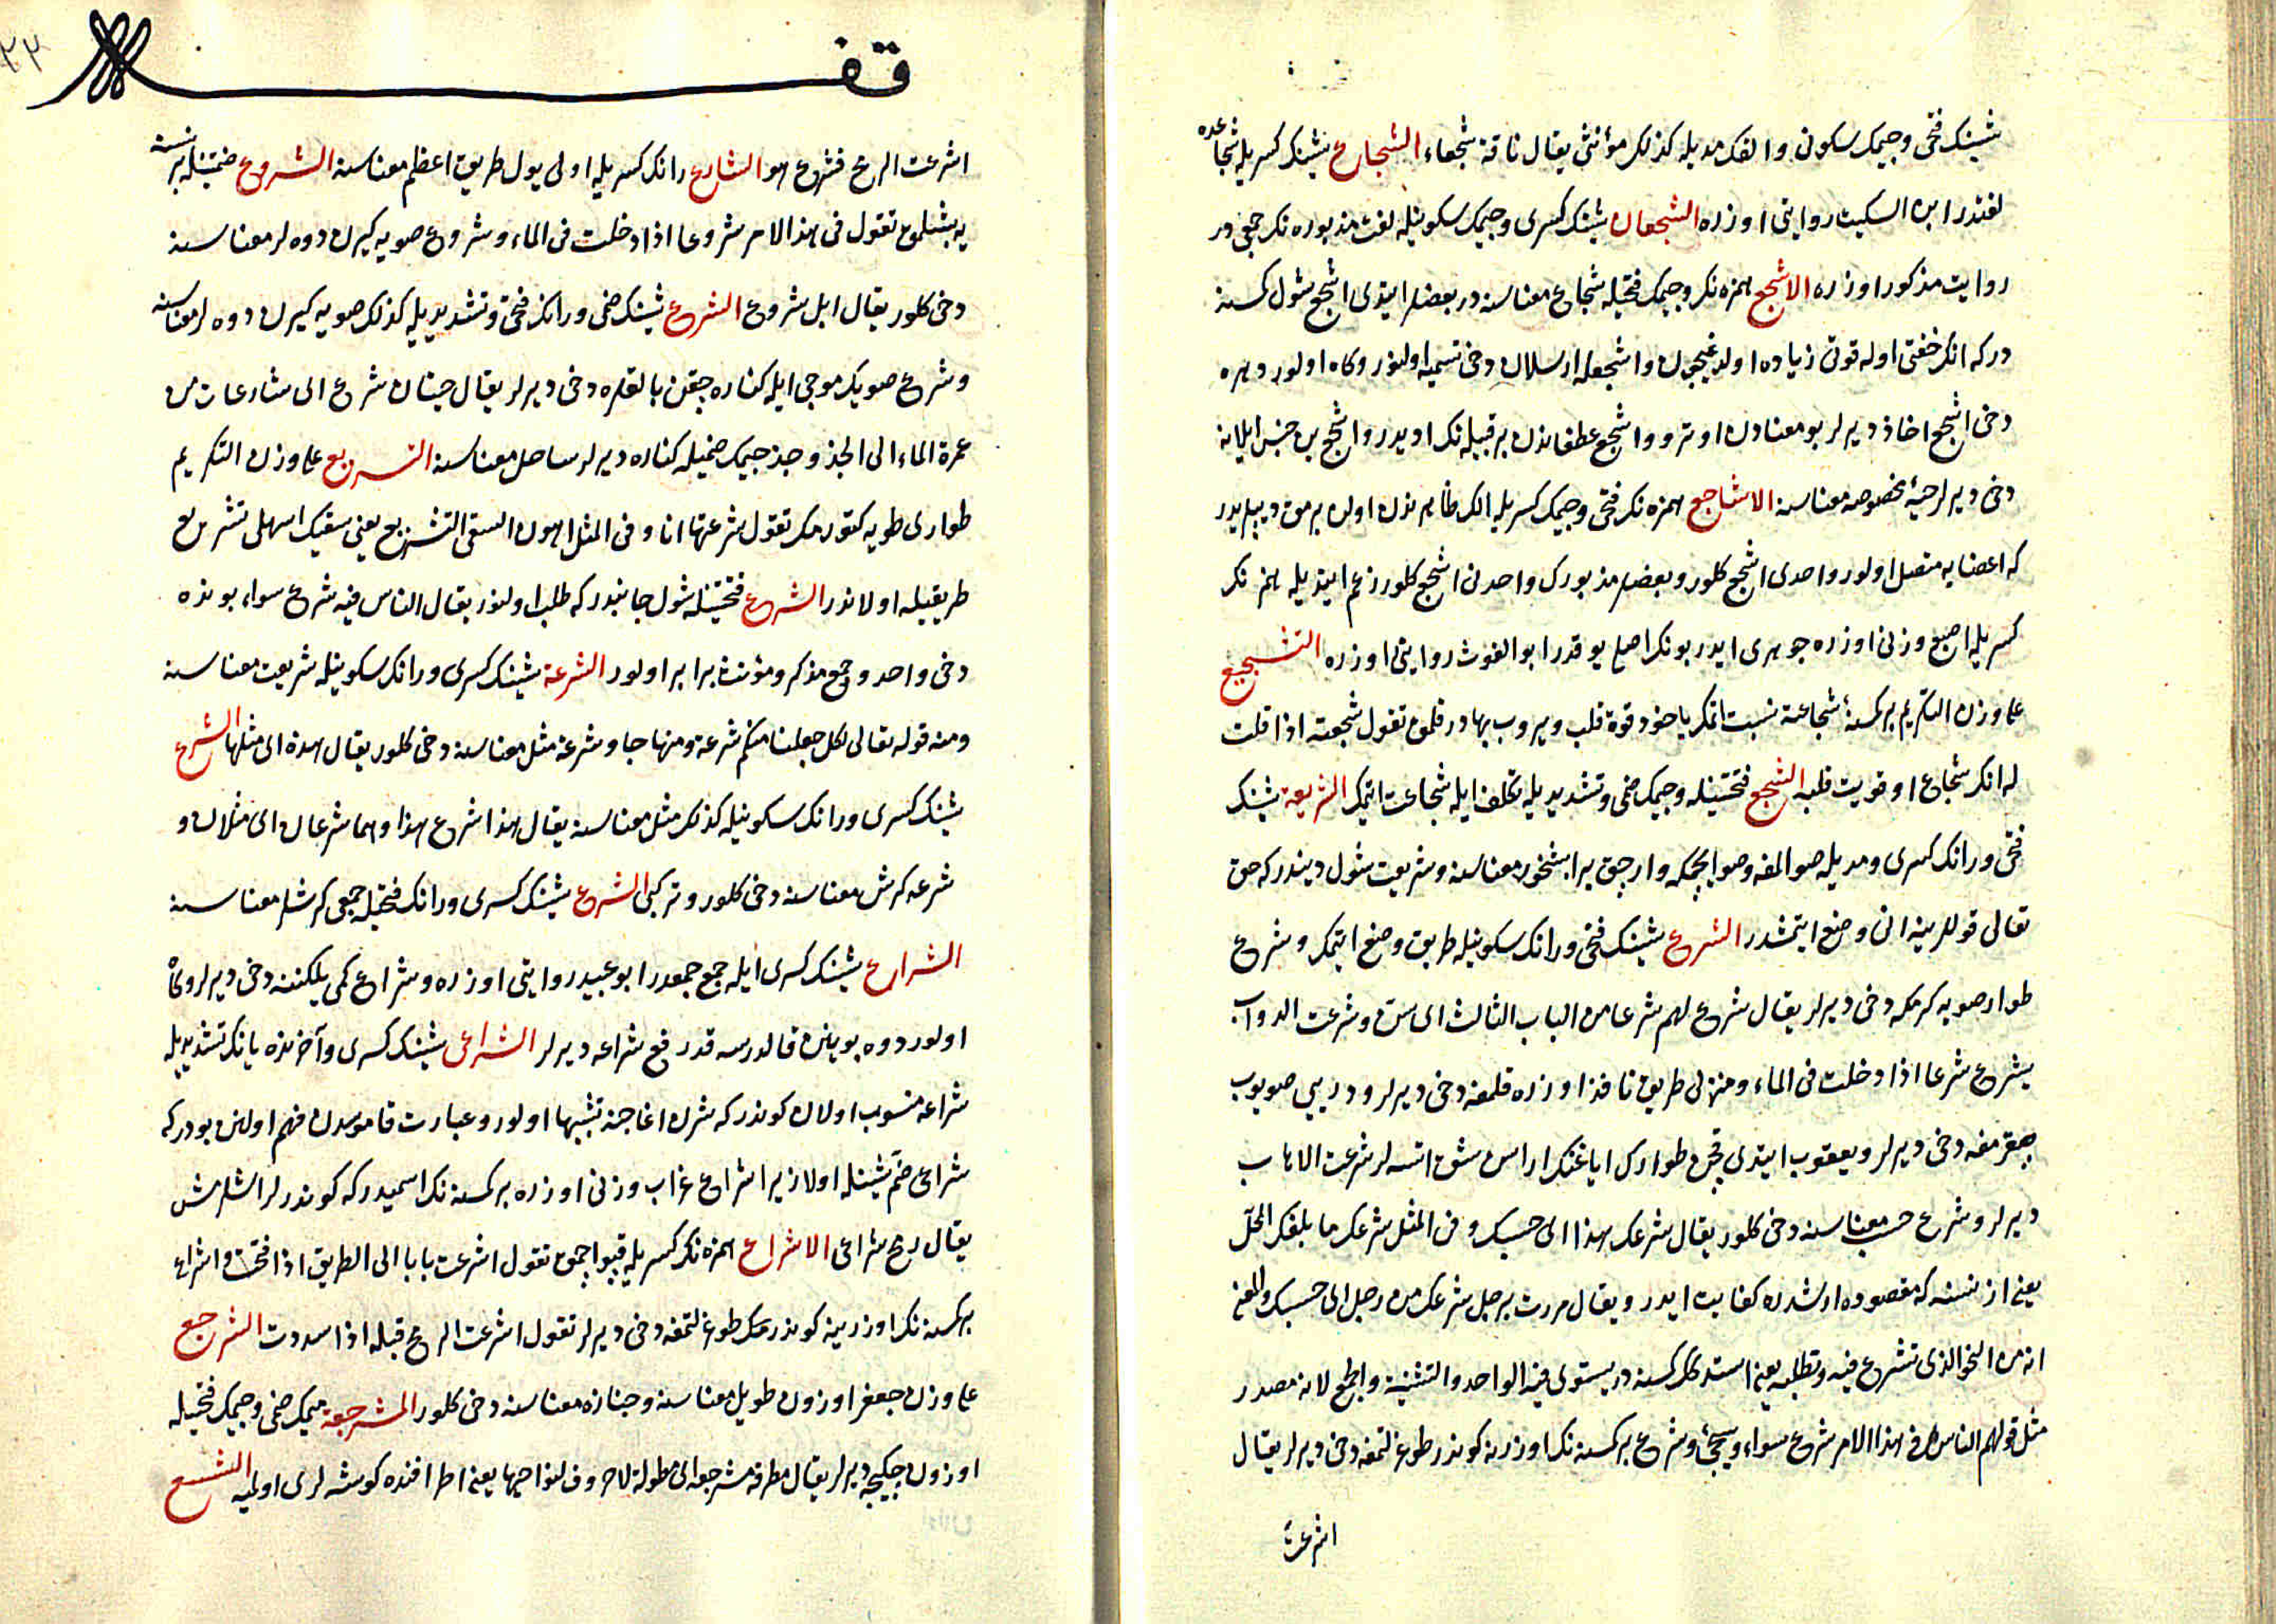 شينك فتحى وجيمك سكونى والفك مديله كذلك مؤنثى يقال ناقة شجعاء الشجاع شينك كسريله شجاعده
لغتدر ابن السكيت روايتى اوزره الشجعان شينك كسرى وجيمك سكونيله لغت مذبوره نك جمعى در
روايت مذكور اوزره الاشجع همزه نك وجيمك فتحيله شجاع معناسنه در بعضلر ايتدى اشجع شول كسنه
دركه انك خفتى اوله قوتى زياده اولديغيچون واشجعله ارسلان دخى تسميه اولنور وكاه اولور دهره
دخى اشجع اخاذ ديرلر بو معنادن اوترو واشجع غطفاندن بر قبيله نك اديدر واشجع بر جنس ايلانه
دخى ديرلر حيۀ مخصوصه معناسنه الاشاجع همزه نك فتحى وجيمك كسريله الك ظاهرنده اولان برمق ديپلريدر
كه اعضايه متصل اولور واحدى اشجع كلور وبعضلر مذبورك واحدنى اشجع كلور زعم ايتديله همزه نك
كسريله اصبع وزنى اوزره جوهرى ايدر بونك اصلى يوقدر ابو الغوث روايتى اوزره التشجيع
على وزن التكريم بر كسنۀ شجاعته نسبت اتمك ياخود قوة قلب ويروب بهادر قلمق تقول شجعته اذا قلت
له انك شجاع او قويت قلبه التشجع فتحتينله وجيمك ضمى وتشديديله تكلف ايله شجاعت اتمك الشريعة شينك
فتحى ورانك كسرى ومديله صو المغه وصو ايچمكه وارجق يرا بشخور معناسنه وشريعت شول ديندر كه حق
تعالى قوللرينه انى وضع ايتمشدر الشرع شينك فتحى ورانك سكونيله طريق وضع ايتمك وشرع
طوار صويه كرمكه دخى ديرلر يقال شرع لهم شرعا من الباب الثالث اى سن وشرعت الدواب
يشرع شرعا اذا دخلت فى الماء ومنزلى طريق نافذ اوزره قلمغه دخى ديرلر ودريى صويوب
چقرمغه دخى ديرلر ويعقوب ايتدى قچن طوارك اياغنك اراسن شق اتسه لر شرعت الاهاب
ديرلر وشرع حسب معناسنه دخى كلور يقال شرعك هذا اى حسبك وفى المثل شرعك ما بلغك المحل
يعنى از نسنه كه مقصوده ارشدره كفايت ايدر ويقال مررت برجل شرعك من رجل اى حسبك والمعنى
انه من النحو الذى تشرع فيه وتطلبه يعنى استدكك كسنه در يستوى فيه الواحد والتثنية والجمع لانه مصدر
مثل قولهم الناس فى هذا الامر شرع سواء وسيجئ وشرع بر كسنه نك اوزرينه كوندر طوغرلتمغه دخى ديرلر يقال
اشرعت
قفـ
٣٣
اشرعت الرمح فشرع هو الشارع رانك كسريله اولى يول طريق اعظم معناسنه الشروع ضمتينله بر نسنه
يه بشلمق تقول فى هذا الامر شروعا اذا دخلت فى الماء وشروع صويه كيرن دوه لر معناسنه
دخى كلور يقال ابل شروع الشرع شينك ضمى ورانك فتحى وتشديديله كذلك صويه كيرن دوه لر معناسنه
وشرع صويك موجى ايله كناره چقن بالقلره دخى ديرلر يقال حيتان شرع اى شارعات من
غمرة الماء الى الجد وجد جيمك ضميله كناره ديرلر ساحل معناسنه التشريع على وزن التكريم
طوارى طويه كتورمك تقول شرعتها انا وفى المثل اهون السقى التشريع يعنى سقيك اسهلى تشريع
طريقيله اولاندر الشرع فتحتينله شول جانبدر كه طلب اولنور يقال الناس فيه شرع سواء بونده
دخى واحد وجمع مذكر ومؤنث برابر اولور الشرعة شينك كسرى ورانك سكونيله شريعت معناسنه
ومنه قوله تعالى لكل جعلنا منكم شرعة ومنهاجا وشرعة مثل معناسنه دخى كلور يقال هذه اى مثلها الشرع
شينك كسرى ورانك سكونيله كذلك مثل معناسنه يقال هذا شرع هذا وهما شرعان اى مثلان و
شرعه كرش معناسنه دخى كلور وتركبى الشرع شينك كسرى ورانك فتحيله جمعى كرشلر معناسنه
الشراع شينك كسرى ايله جمع جمعدر ابو عبيد روايتى اوزره وشراع كمى يلكننه دخى ديرلر وكاه
اولور دوه بوينن قالدرسه قد رفع شراعه ديرلر الشراعى شينك كسرى وآخرنده يانك تشديديله
شراعه منسوب اولان كوندر كه شرك اغاجنه تشبيها اولور وعبارت قاموسدن فهم اولنن بودر كه
شراعى ضم شينله اولا زيرا شراع غراب وزنى اوزره بر كسنه نك اسميدر كه كوندرلر اشلرمش
يقال رمح شراعى الاشراع همزه نك كسريله قپو اچمق تقول اشرعت بابا الى الطريق اذا فتحته واشراع
بر كسنه نك اوزرينه كوندرمك طوغرلتمغه دخى ديرلر تقول اشرعت الرمح قبله اذا سددت الشرجع
على وزن جعفر اوزون طويل معناسنه وجنازه معناسنه دخى كلور المشرجعة ميمك ضمى وجيمك فتحيله
اوزون چكيجه ديرلر يقال مطرقة مشرجعة اى مطولة لا حروف لنواحيها يعنى اطرافنده كوشه لرى اوليه الشسع